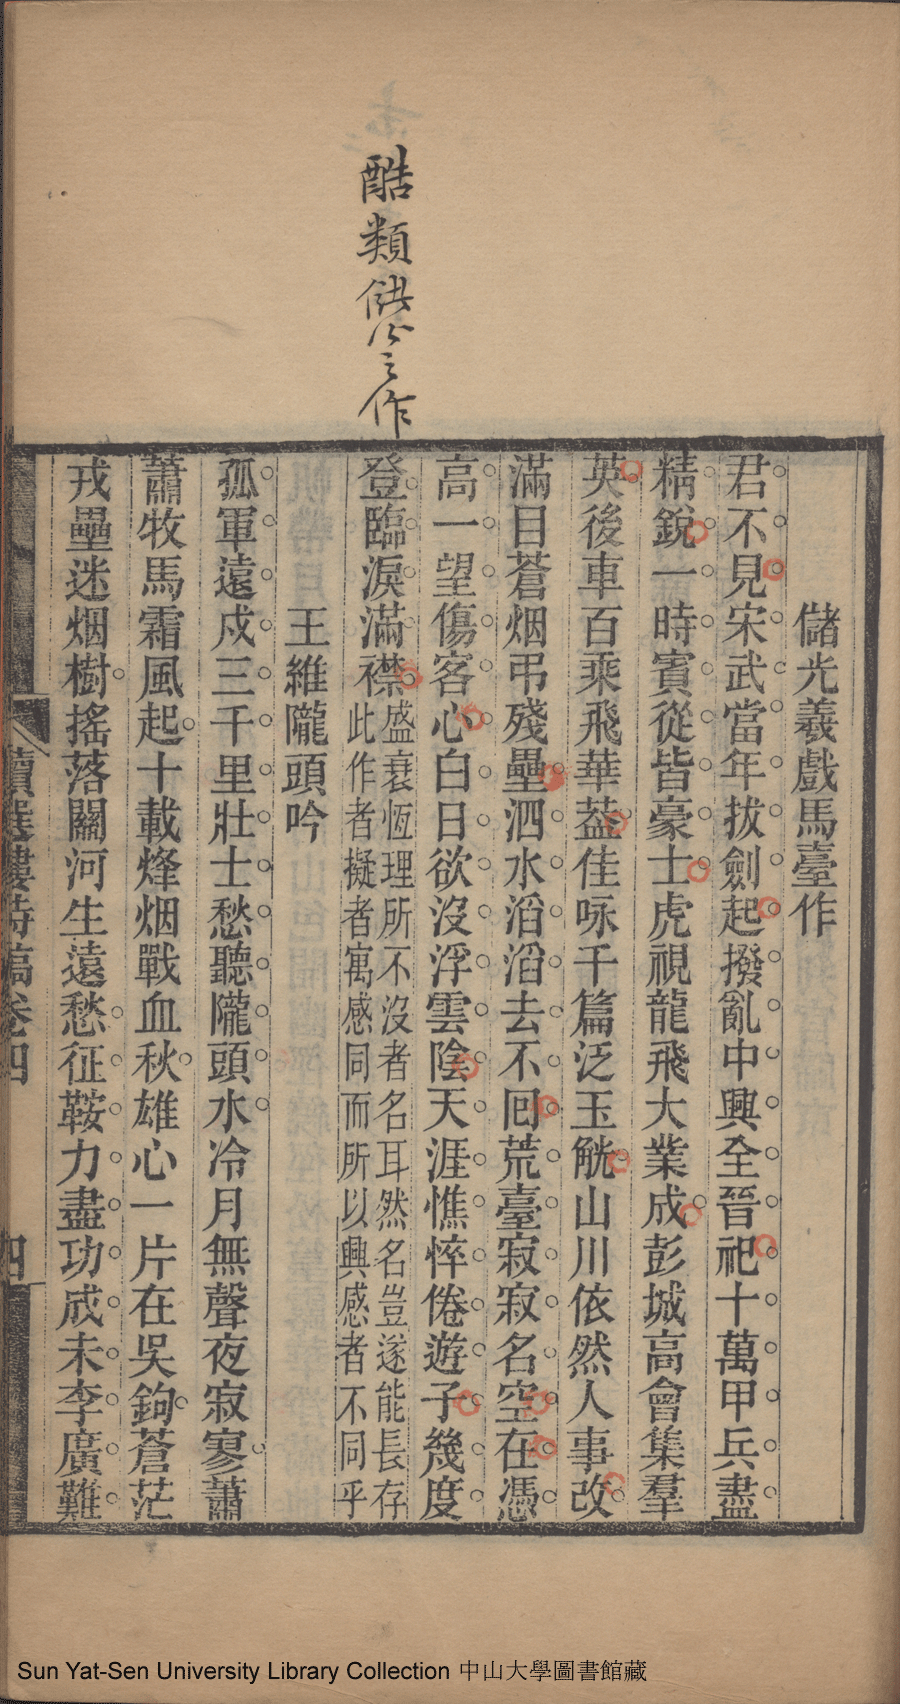 酷類儲公之作
儲光羲戲馬臺作
君不見宋武當年拔劍起撥亂中興全晉祀十萬甲兵盡
精銳一時賓從皆豪士虎視龍飛大業成彭城高會集羣
英後車百乘飛華葢佳咏千篇泛玉觥山川依然人事改
滿目蒼烟弔殘壘泗水滔滔去不囘荒臺寂寂名空在憑
高一望傷客心白日欲沒浮雲陰天涯憔悴倦遊子幾度
登臨淚滿襟盛衰恆理所不沒者名耳然名豈遂能長存
此作者擬者寓感同而所以興感者不同乎
王維隴頭吟
孤軍遠戍三千里壯士愁聽隴頭水冷月無聲夜寂寥蕭
蕭牧馬霜風起十載烽烟戰血秋雄心一片在吳鉤蒼茫
戎壘迷烟樹搖落關河生遠愁征鞍力盡功成未李廣難
讀選樓詩稿卷四
四
Sun Yat-Sen University Library Collection 中山大學圖書館藏